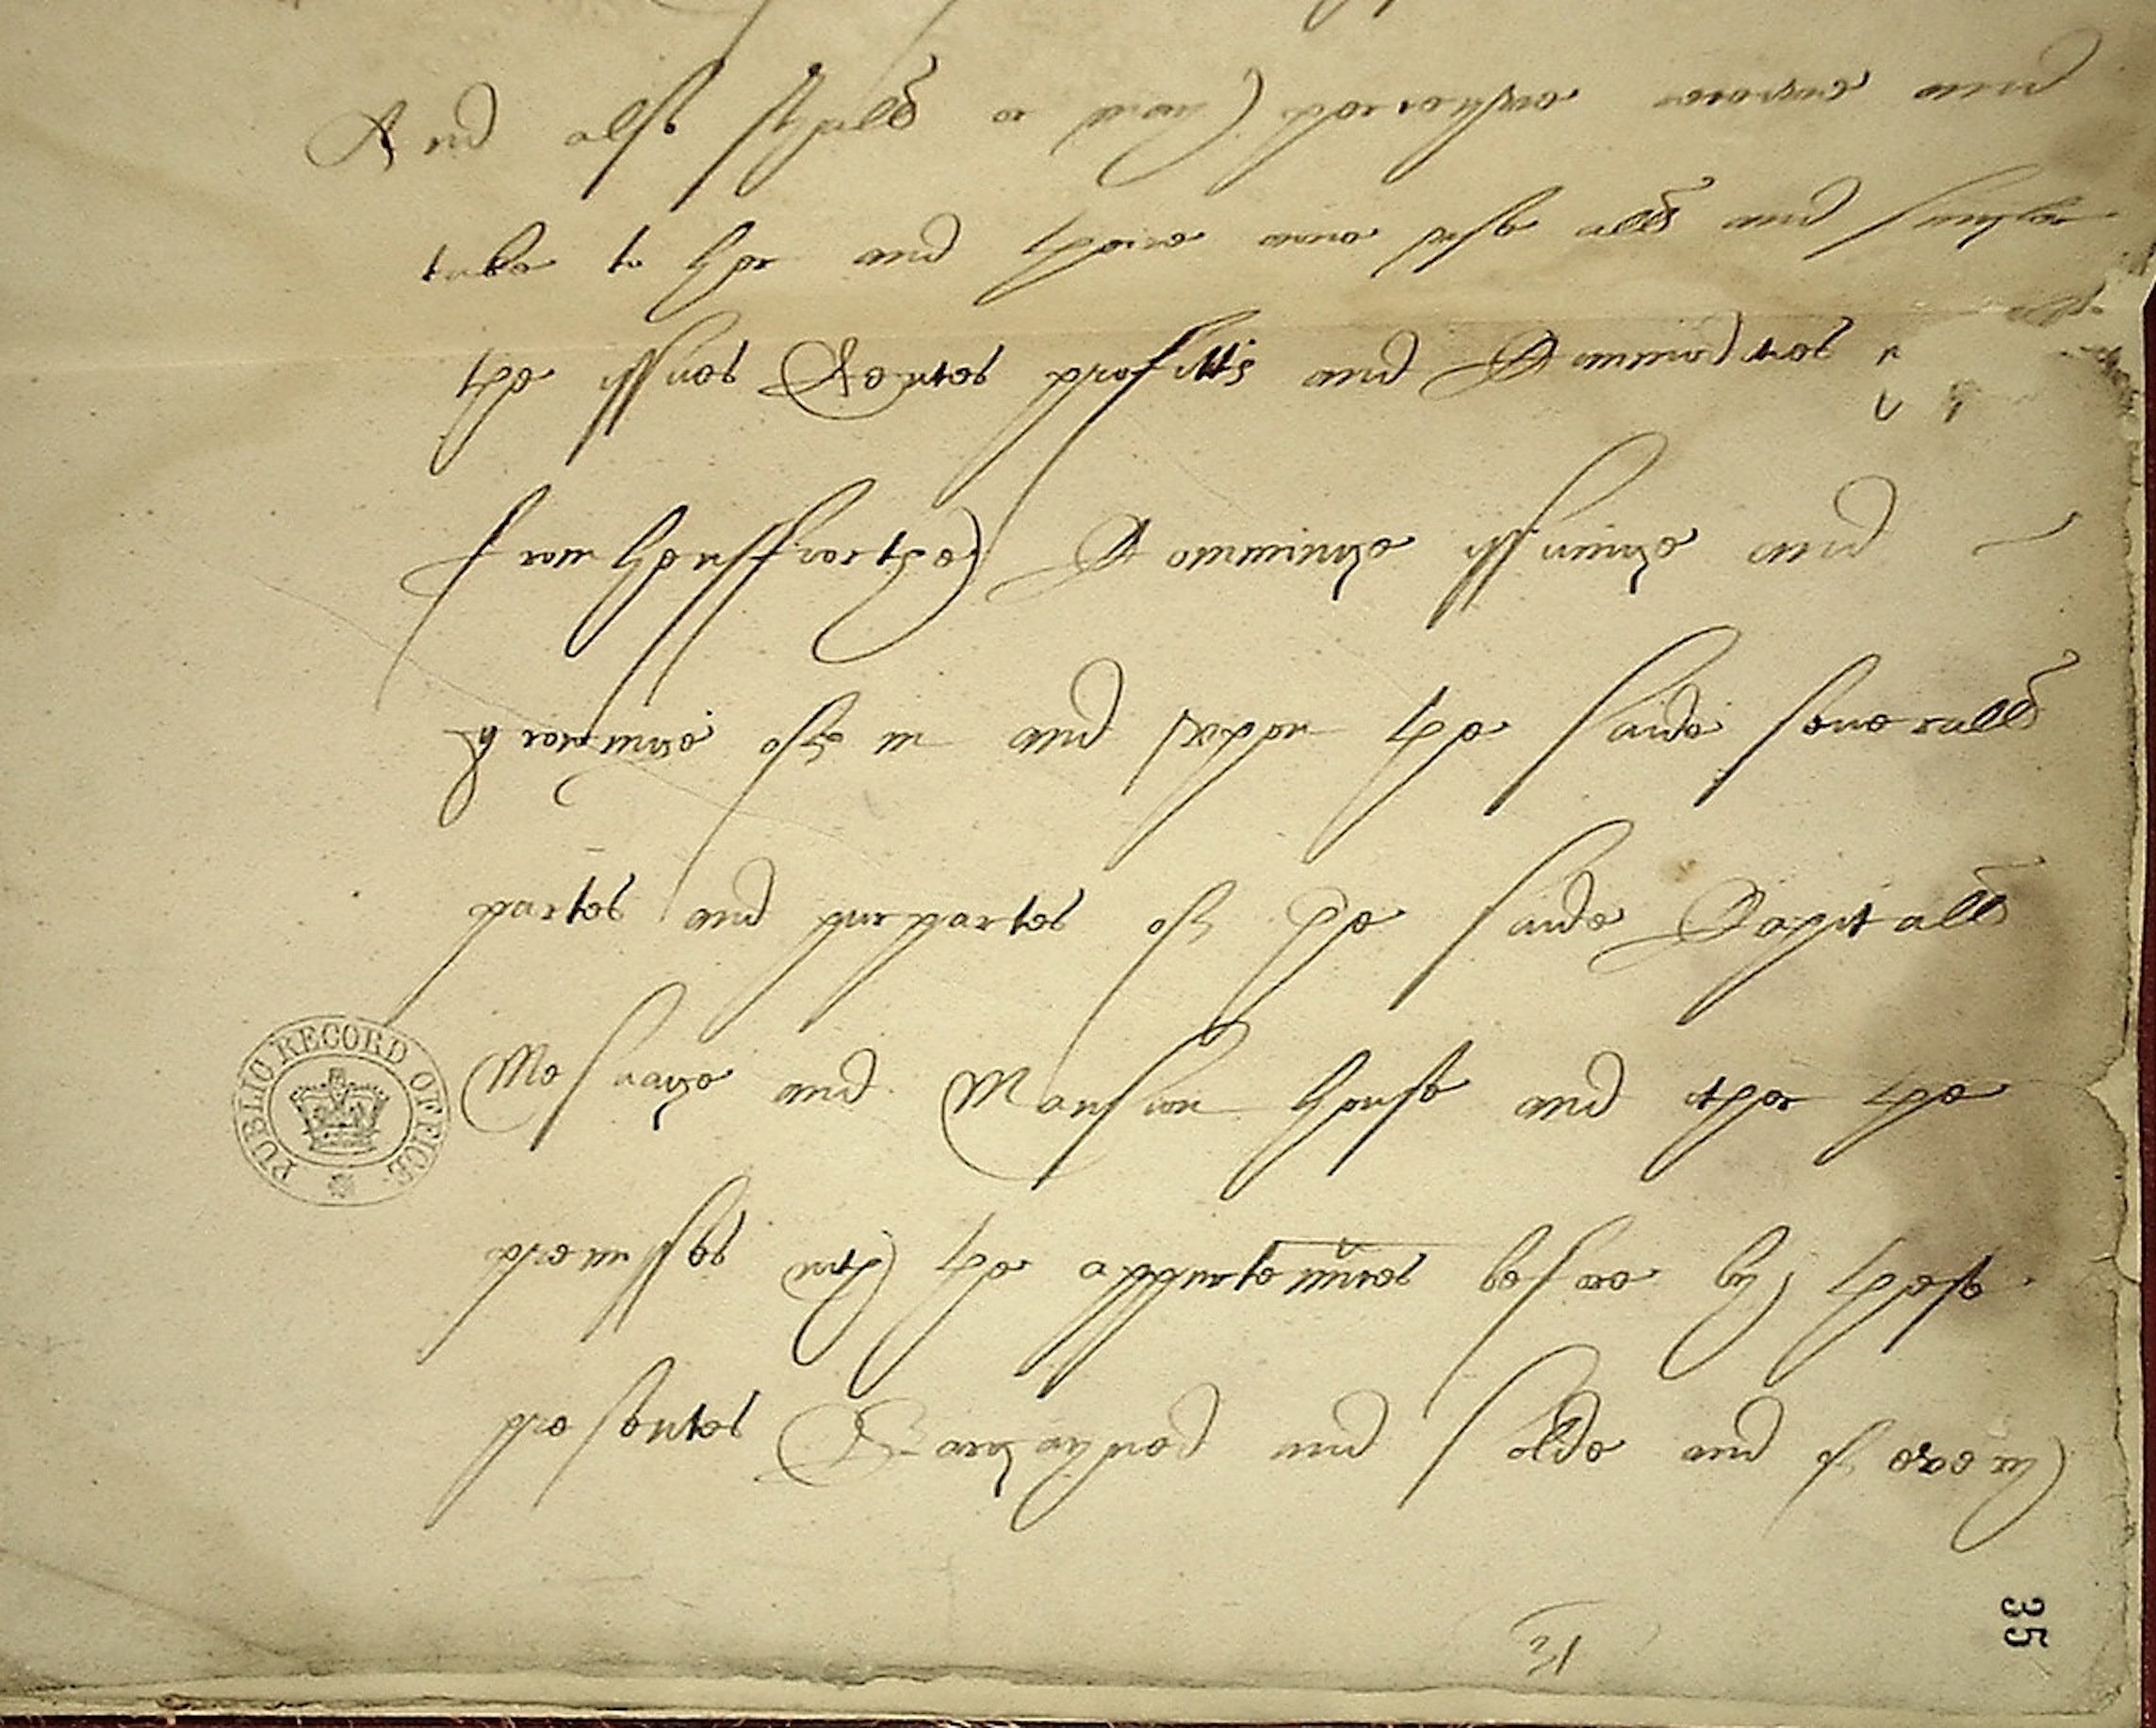 And also shall or may perceyve receive and
take to her and theire owne use all and singler
the yssues Rentes profitts and Commodities
from hensfforthe Comminge yssuinge and
growinge of in and vppon the saide seuerall
partes and purpartes of the saide Capitall
Mesuage and Mansion house and other the
premisses with the appurtenances before by these
presentes Bargayned and solde and of euery
PUBLIC RECORD OFFICE
35